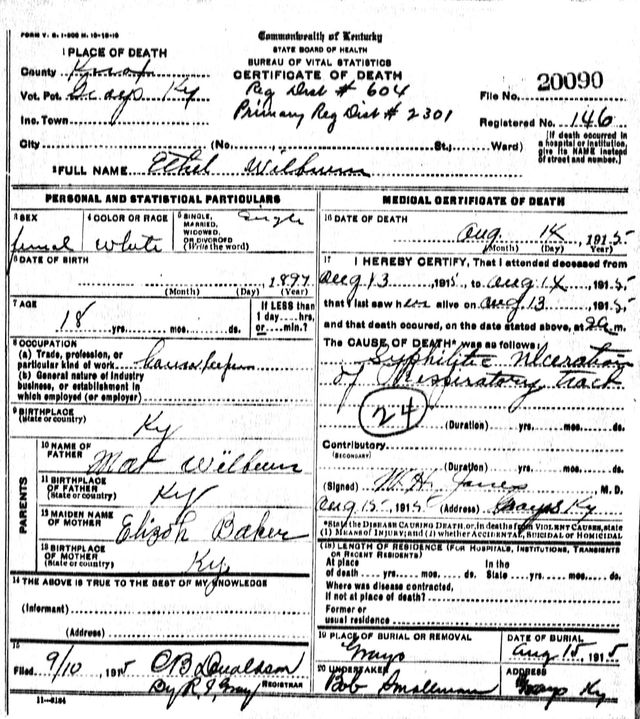 FORM V. S. 1-200 M. 10-15-10
Commonwealth of Kentucky
STATE BOARD OF HEALTH
BUREAU OF VITAL STATISTICS
CERTIFICATE OF DEATH
1 PLACE OF DEATH
County Knox
Vot. Pct. Grays Ky
Inc. Town
City (No. St.; Ward)
Reg Dist # 604
Primary Reg Dist # 2301
File No. 20090
Registered No. 146
[If death occurred in
a hospital or institution,
give its NAME instead
of street and number.]
2 FULL NAME Ethel Wilburn
PERSONAL AND STATISTICAL PARTICULARS
3 SEX femal
4 COLOR OR RACE White
5 SINGLE, MARRIED, WIDOWED, OR DIVORCED (Write the word) Single
6 DATE OF BIRTH
, 1897
(Month) (Day) (Year)
7 AGE
18 yrs. mos. ds.
If LESS than
1 day....hrs.
or....min.?
8 OCCUPATION
(a) Trade, profession, or
particular kind of work
(b) General nature of industry
business, or establishment in
which employed (or employer)
9 BIRTHPLACE
(State or country) Ky
PARENTS
10 NAME OF FATHER Mat Wilburn
11 BIRTHPLACE OF FATHER (State or country) Ky
12 MAIDEN NAME OF MOTHER Elizoh Baker
13 BIRTHPLACE OF MOTHER (State or country) Ky
14 THE ABOVE IS TRUE TO THE BEST OF MY KNOWLEDGE
(Informant)
(Address)
15
Filed 9/10, 1915 CB Donaldson
By R. J. Gray REGISTRAR
11-3184
MEDICAL CERTIFICATE OF DEATH
16 DATE OF DEATH
Aug 14, 1915
(Month) (Day) (Year)
17 I HEREBY CERTIFY, That I attended deceased from
Aug 13, 1915, to Aug 14, 1915
that I last saw her alive on Aug 13, 1915
and that death occured, on the date stated above, at m.
The CAUSE OF DEATH* was as follows:
Syphilitic Ulceration
of Respiratory track
24
(Duration) yrs. mos. ds.
Contributory
(SECONDARY)
(Duration) yrs. mos. ds.
(Signed) W. H. Jones M. D.
Aug 15, 1915 (Address) Grays Ky
*State the DISEASE CAUSING DEATH, or, in deaths from VIOLENT CAUSES, state
(1) MEANS OF INJURY; and (2) whether ACCIDENTAL, SUICIDAL or HOMICIDAL
(18) LENGTH OF RESIDENCE (FOR HOSPITALS, INSTITUTIONS, TRANSIENTS
OR RECENT RESIDENTS)
At place In the
of death yrs. mos. ds. State yrs. mos. ds.
Where was disease contracted,
if not at place of death?
Former or
usual residence
19 PLACE OF BURIAL OR REMOVAL Grays
DATE OF BURIAL Aug 15, 1915
20 UNDERTAKER Bob Smallman
ADDRESS Grays Ky